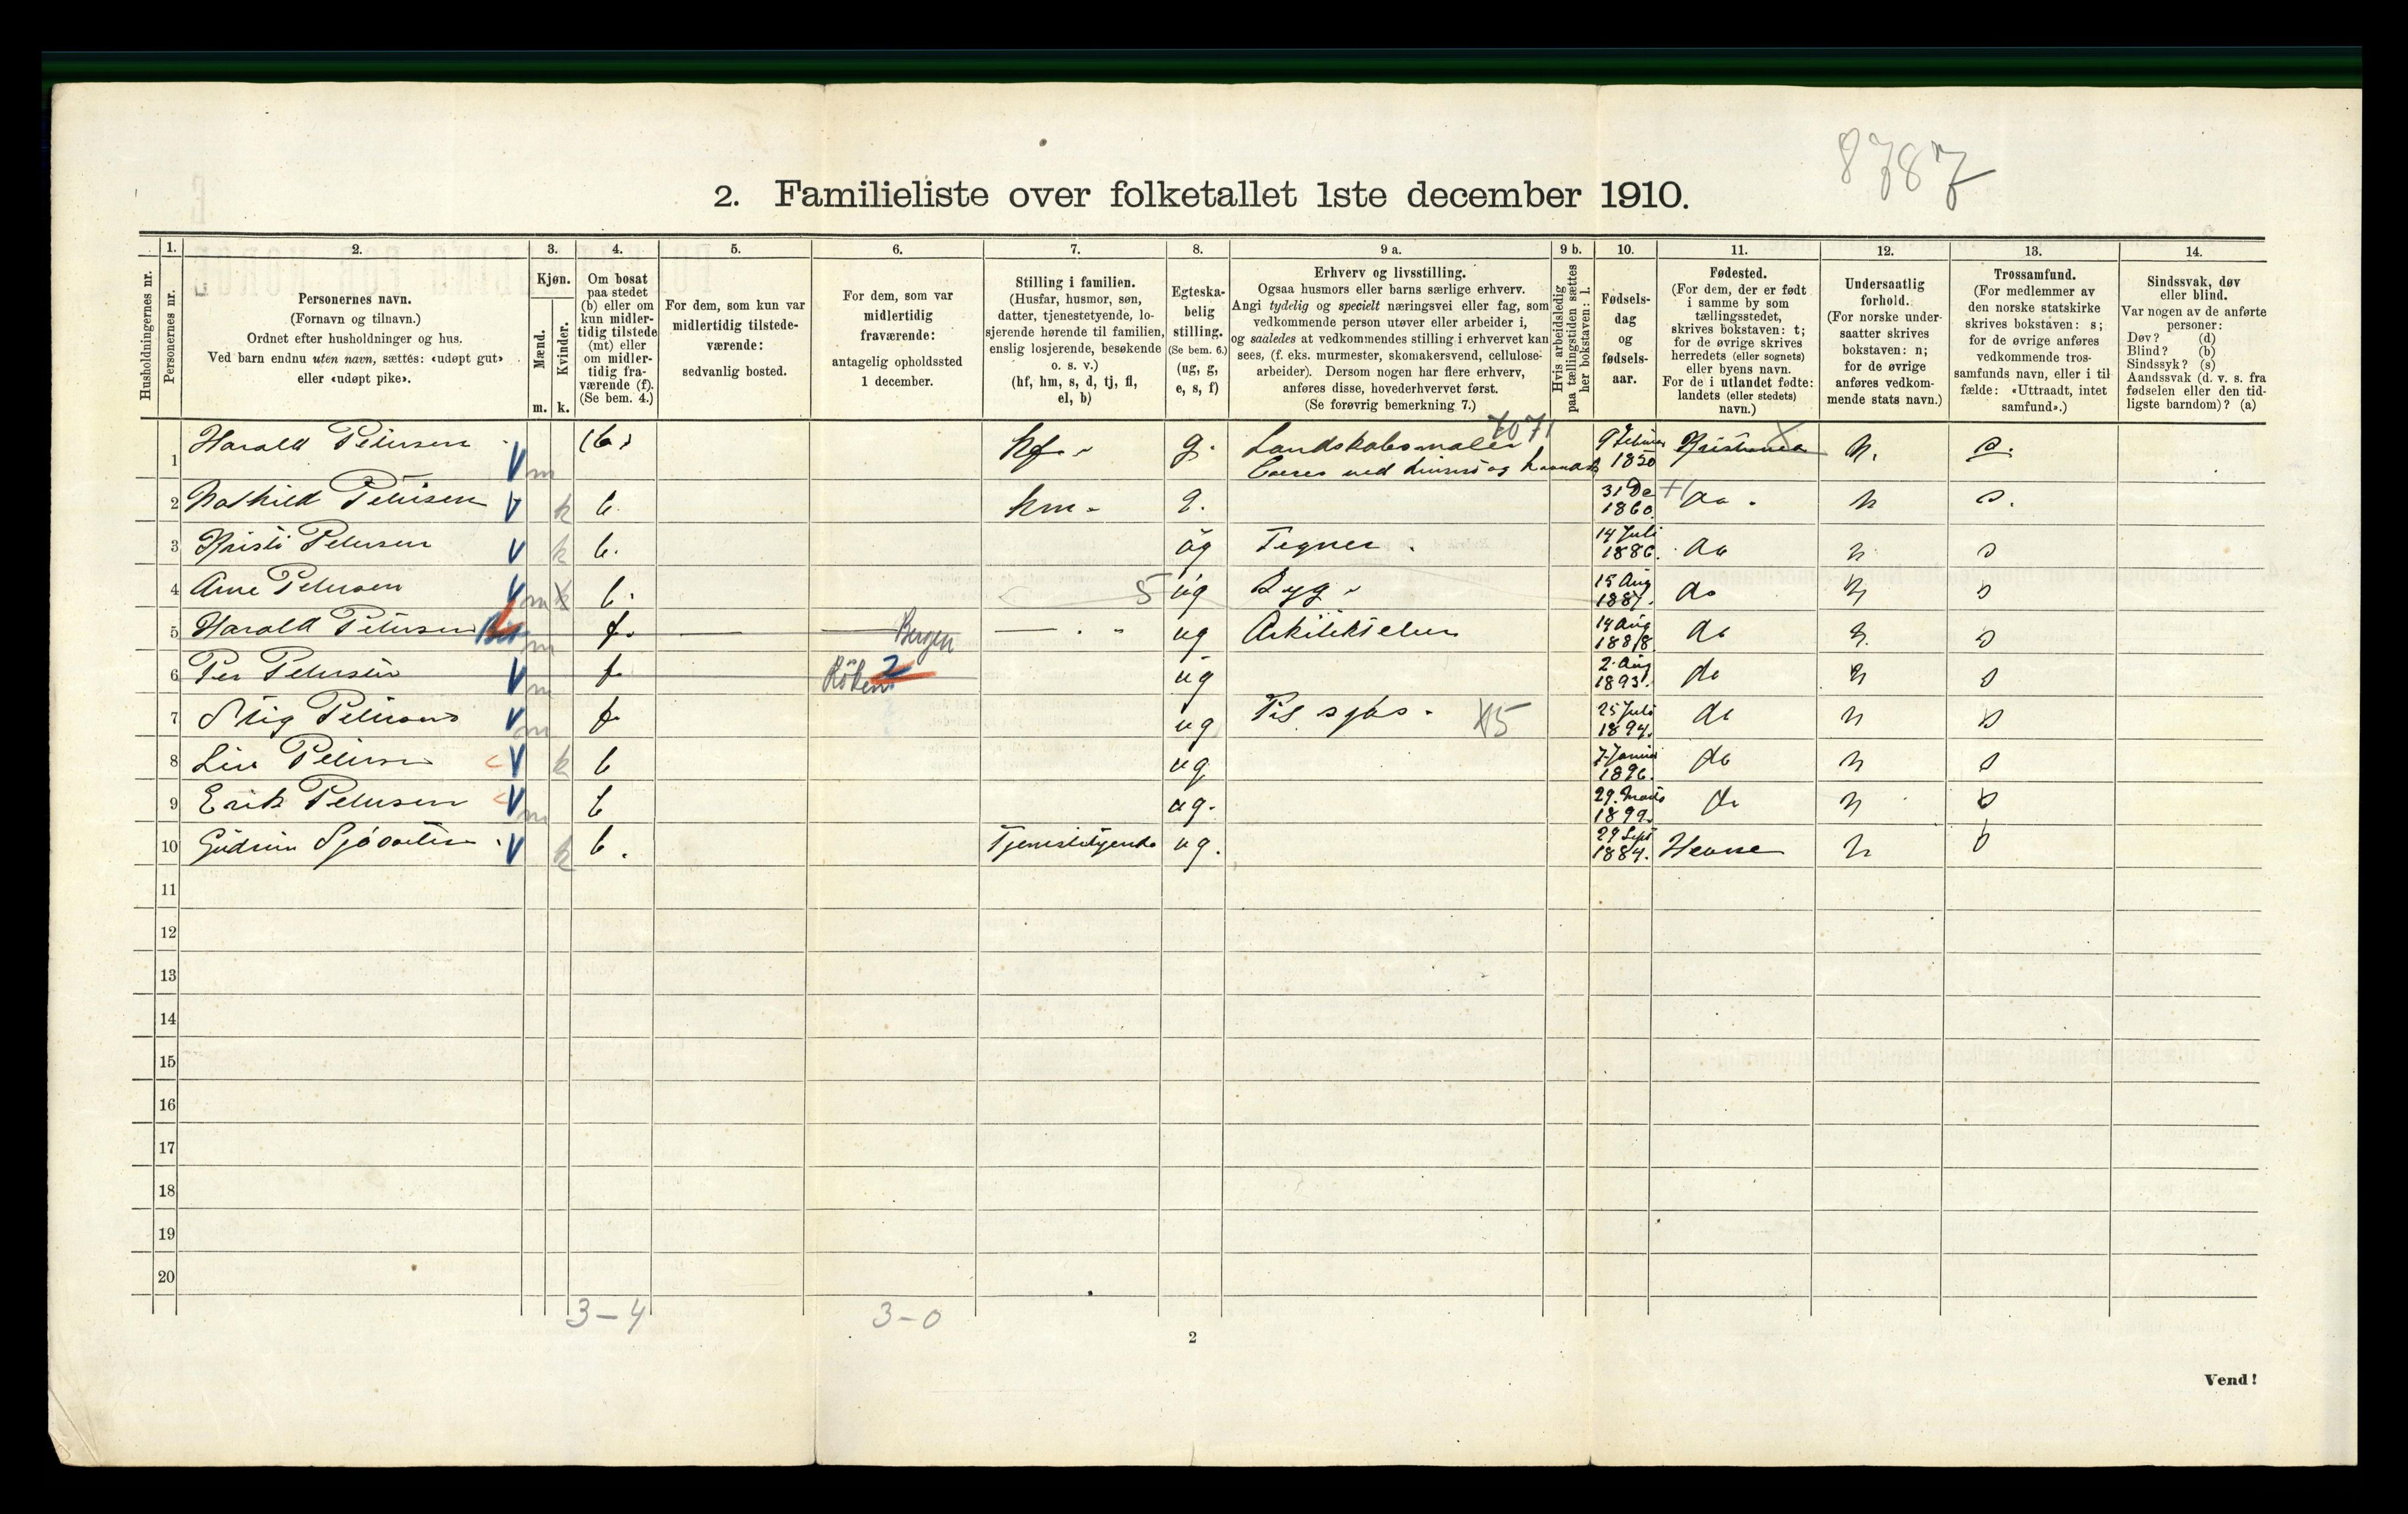 8787
2. Familieliste over folketallet 1ste december 1910.
Husholdningernes nr.
1.
Personernes nr.
2.
Personernes navn.
(Fornavn og tilnavn.)
Ordnet efter husholdninger og hus.
Ved barn endnu uten navn, sættes: «udøpt gut»
eller «udøpt pike».
3.
Kjøn.
Mænd.
Kvinder.
m. k.
4.
Om bosat
paa stedet
(b) eller om
kun midler-
tidig tilstede
(mt) eller
om midler-
tidig fra-
værende (f).
(Se bem. 4.)
5.
For dem, som kun var
midlertidig tilstede-
værende:
sedvanlig bosted.
6.
For dem, som var
midlertidig
fraværende:
antagelig opholdssted
1 december.
7.
Stilling i familien.
(Husfar, husmor, søn,
datter, tjenestetyende, lo-
sjerende hørende til familien,
enslig losjerende, besøkende
o. s. v.)
(hf, hm, s, d, tj, fl,
el, b)
8.
Egteska-
belig
stilling.
(Se bem. 6.)
(ug, g,
e, s, f)
9 a.
Erhverv og livsstilling.
Ogsaa husmors eller barns særlige erhverv.
Angi tydelig og specielt næringsvei eller fag, som
vedkommende person utøver eller arbeider i,
og saaledes at vedkommendes stilling i erhvervet kan
sees, (f. eks. murmester, skomakersvend, cellulose-
arbeider). Dersom nogen har flere erhverv,
anføres disse, hovederhvervet først.
(Se forøvrig bemerkning 7.)
9 b.
Hvis arbeidsledig
paa tællingstiden sættes
her bokstaven: l.
10.
Fødsels-
dag
og
fødsels-
aar.
11.
Fødested.
(For dem, der er født
i samme by som
tællingsstedet,
skrives bokstaven: t;
for de øvrige skrives
herredets (eller sognets)
eller byens navn.
For de i utlandet fødte:
landets (eller stedets)
navn.)
12.
Undersaatlig
forhold.
(For norske under-
saatter skrives
bokstaven: n;
for de øvrige
anføres vedkom-
mende stats navn.)
13.
Trossamfund.
(For medlemmer av
den norske statskirke
skrives bokstaven: s;
for de øvrige anføres
vedkommende tros-
samfunds navn, eller i til-
fælde: «Uttraadt, intet
samfund».)
14.
Sindssvak, døv
eller blind.
Var nogen av de anførte
personer:
Døv? (d)
Blind? (b)
Sindssyk? (s)
Aandssvak (d. v. s. fra
fødselen eller den tid-
ligste barndom)? (a)
1 Harald Petersen V m (b) hf. g. Landskabsmaler 1850 Kristiania n. s.
2 Mathild Petersen V k b. hm. g. 31 De 1860 do. n s.
3 Kristi Petersen V k b. ug Tegner. 14 Juli 1886. do n s
4 Arne Petersen V m k b. 5 ug Syg 15 Aug 1887. do n s
5 Harald Petersen m f. Bergen ug Arkitektelev 14 Aug 1888 do n. s
6 Per Petersen V m f. Röken 2 ug 2. Aug 1893. do n s
7 Stig Petersen V m f. ug Til sjøs. 15 25 Juli 1894. do n s
8 Lise Petersen V k b ug 7. Januar 1896. do n s
9 Erik Petersen V m b ug. 29. Marts 1899. do n s
10 Gudrun V k b. Tjenestetyende ug. 29 Sept 1884. Hevne n s
11
12
13
14
15
16
17
18
19
20
3-4 3-0
2
Vend!